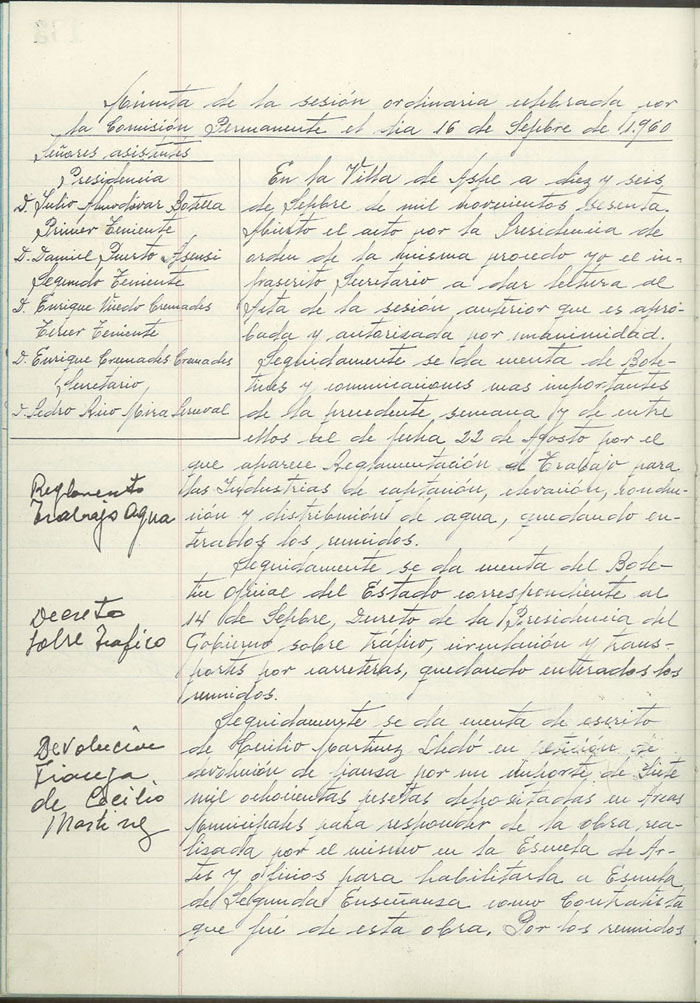 Minuta de la sesión ordinaria celebrada por
la Comisión Permanente el dia 16 de Sepbre de 1.960
Señores asistentes
Presidencia
D. Julio Almodóvar Botella
Primer Teniente
D. Daniel Puerto Asensi
Segundo Teniente
D. Enrique Viñedo Cremades
Tercer Teniente
D. Enrique Cremades Cremades
Secretario
D. Pedro Rico Mira
En la Villa de Aspe a diez y seis
de Sepbre de mil novecientos sesenta.
Abierto el acto por la Presidencia de
orden de la misma procedo yo el in-
frascrito, Secretario a dar lectura al
Acta de la sesión anterior que es apro-
bada y autorizada por unanimidad.
Seguidamente se da cuenta de Bole-
tines y comunicaciones mas importantes
de la precedente semana y de entre
ellos el de fecha 22 de Agosto por el
que aparece Reglamentación de Trabajo para
las Industrias de captación, elevación, condu-
ción y distribución de agua, quedando en-
terados los reunidos.
Reglamento
Trabajo Agua
Seguidamente se da cuenta del Bole-
tin Oficial del Estado correspondiente al
14 de Sepbre, Decreto de la Presidencia del
Gobierno, sobre tráfico, circulación y trans-
portes por carreteras, quedando enterados los
reunidos.
Decreto
sobre Trafico
Seguidamente se da cuenta de escrito
de Cecilio Martinez Lledó en petición de
devolución de fianza por un importe de Siete
mil ochocientas pesetas depositadas en Arcas
Municipales para responder de la obra rea-
lizada por el mismo en la Escuela de Ar-
tes y oficios para habilitarla a Escuela
de Segunda Enseñanza como Contratista
que fué de esta obra. Por los reunidos
Devolucion
Fianza
de Cecilio
Martinez